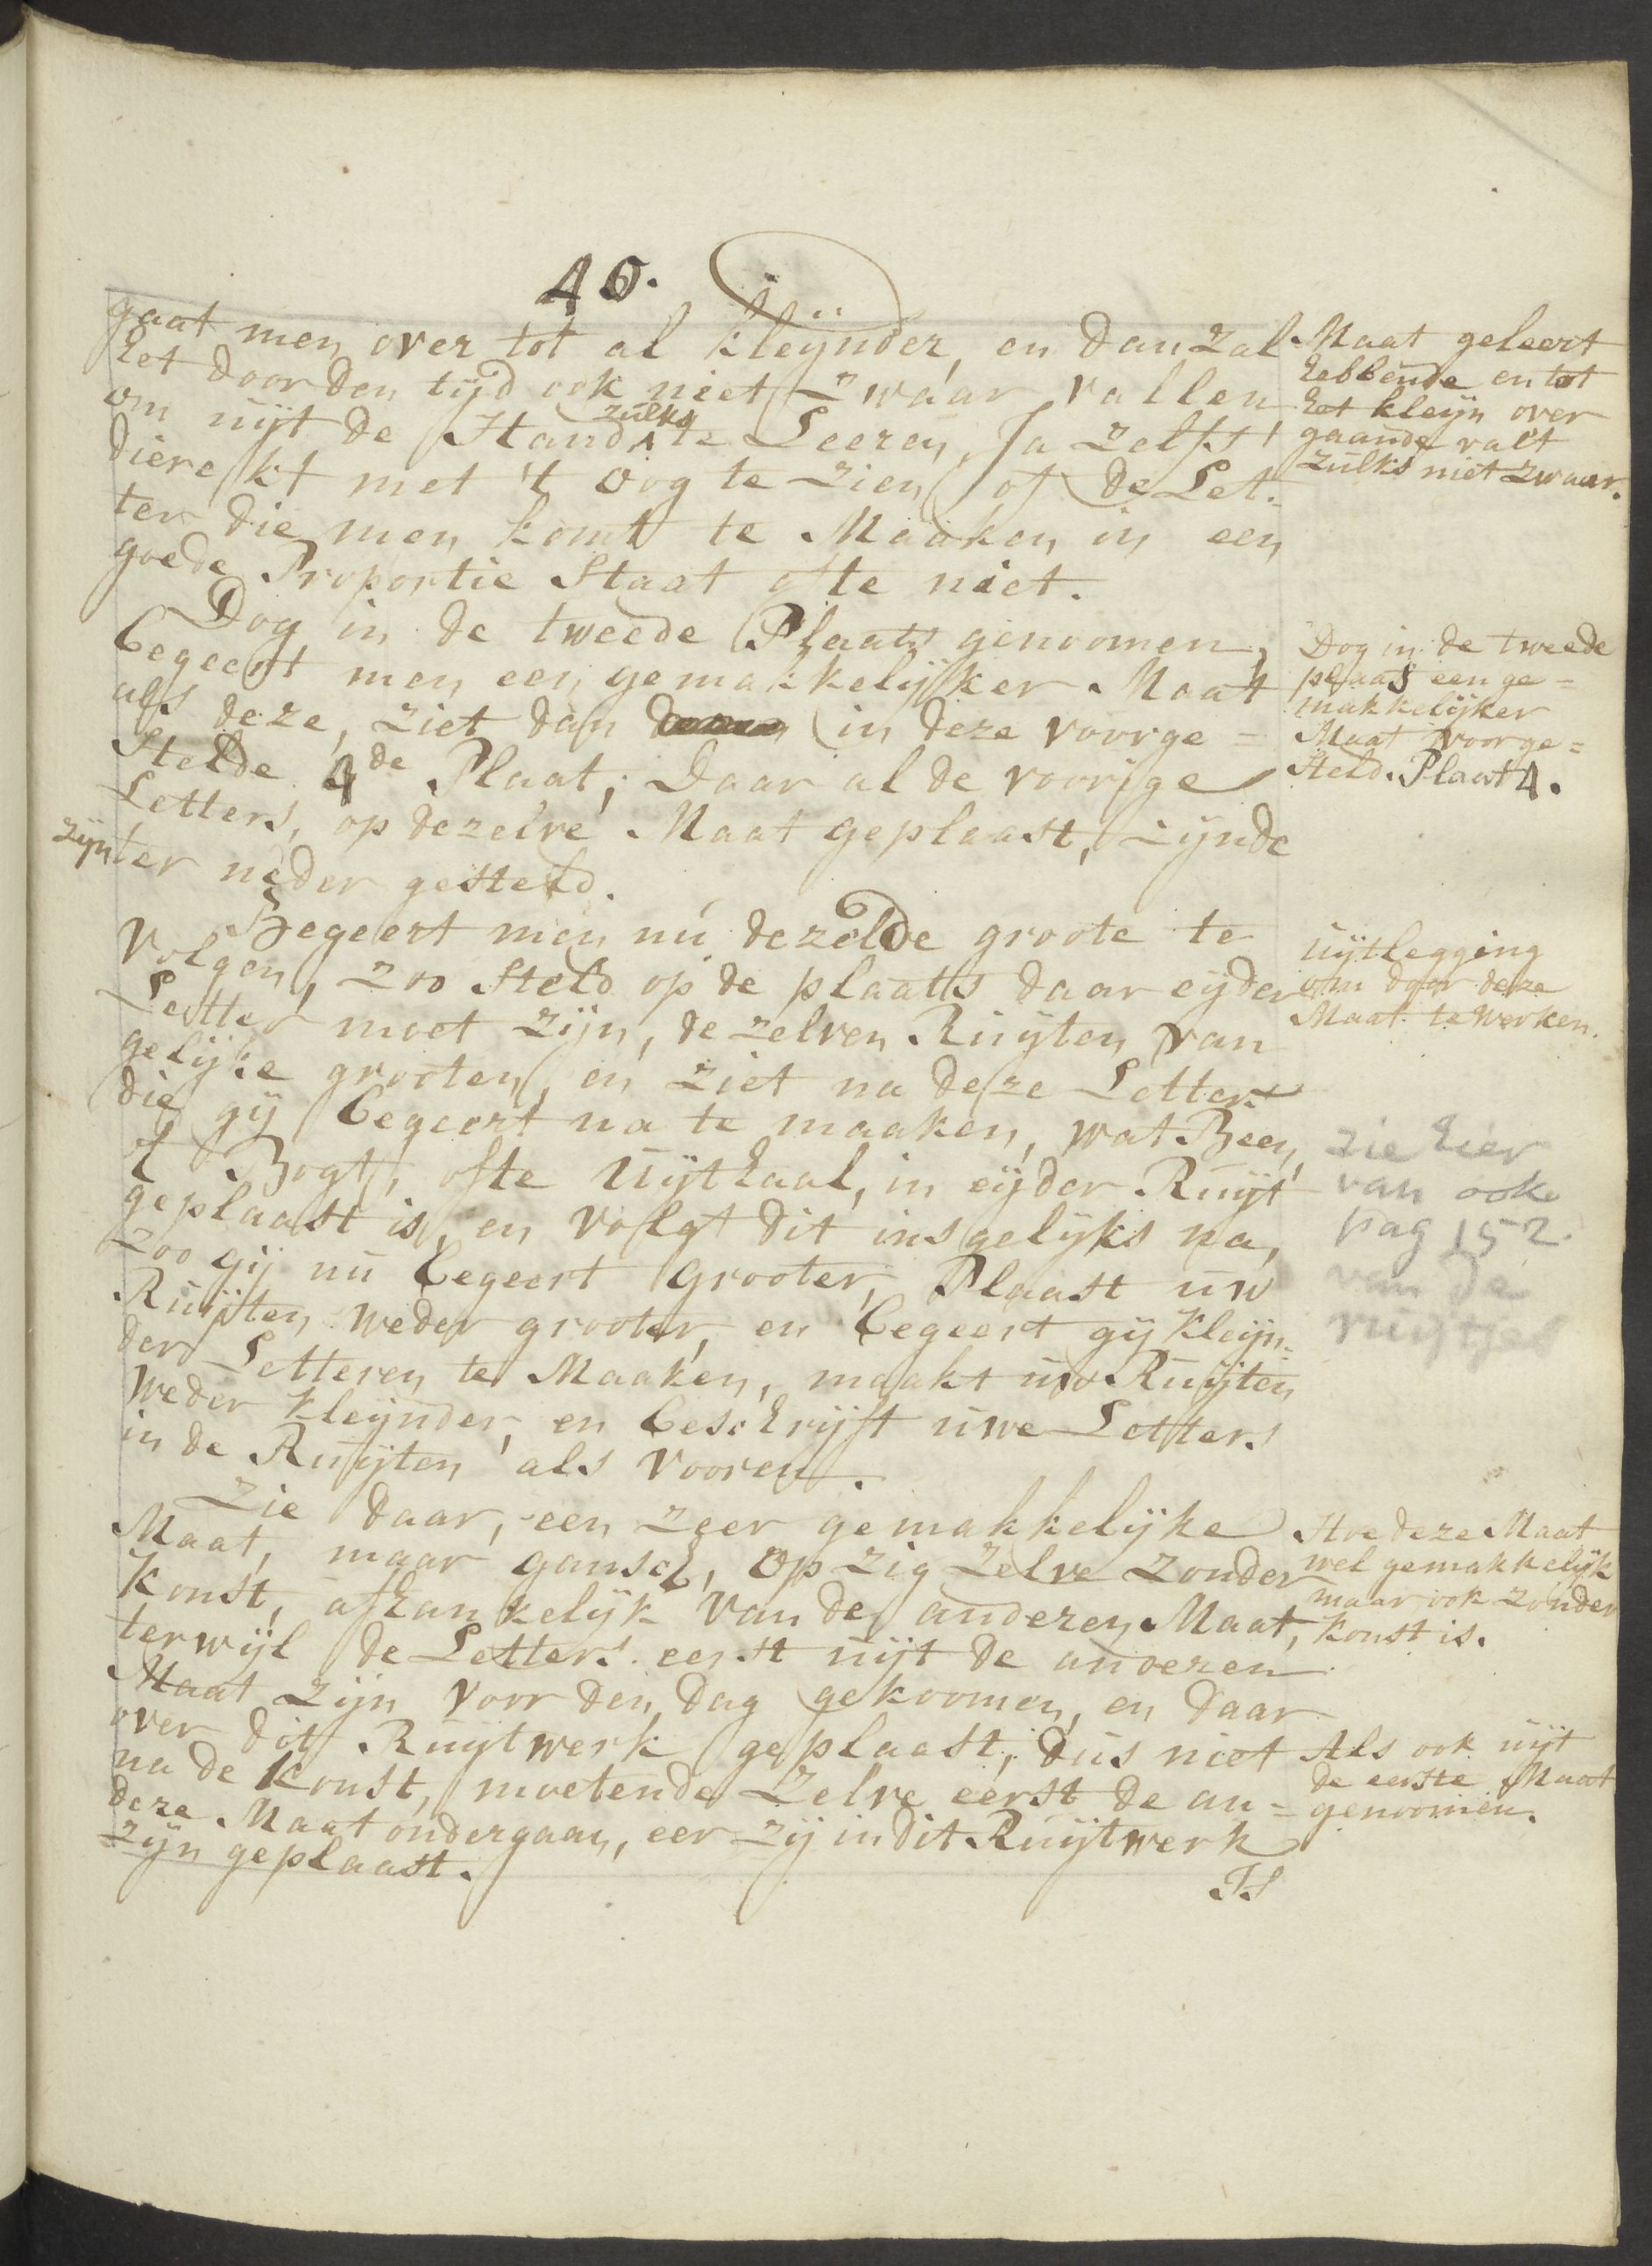 40.
gaat men over tot al kleijnder, en dan zal
het door den tijd ook niet zwaar vallen
om uijt de Hand zulks te Leeren, Ja zelfs
dierekt met 't oog te zien, of de Let-
ter die men komt te Maaken in een
goede Proportie Staat ofte niet.
Dog in de tweede Plaats genoomen,
begeert men een gemakkelijker Maat
als deze, ziet dan in deze voorge=
Stelde 4de Plaat; Daar al de voorige
Letters, op dezelve Maat geplaast, zijnde
zijn ter neder gesteld.
Begeert men nu dezelde groote te
Volgen, zoo Steld op de plaatts daar eijder
Letter moet zijn, de zelven Ruijten van
gelijke grooten, en ziet na deze Letter
die gij begeert na te maaken, wat Been,
't Bogt, ofte Uijthaal, in eijder Ruijt
geplaast is, en volgt dit insgelijks na,
zoo gij nu begeert grooter, Plaast uw
Ruijten weder grooter, en begeert gij kleijn-
der Letteren te Maaken, maakt uw Ruijten
weder kleijnder, en beschrijft uwe Letters
in de Ruijten als vooren.
Zie daar, een zeer gemakkelijke
Maat, maar gansch, op zig zelve zonder
konst, afhankelijk van de anderen Maat,
terwijl de Letters eerst uijt de anderen
Maat zijn voor den dag gekoomen, en daar
over dit Ruijtwerk geplaast, dus niet
na de konst, moetende zelve eerst de an=
deze Maat ondergaan, eer zij in dit Ruijtwerk
zijn geplaast.
IS
Maat geleert
hebbende en tot
het kleijn over
gaande valt
zulks niet zwaar.
Dog in de tweede
plaas een ge=
makkelijker
Maat voorge=
steld. Plaat 4.
Uijtlegging
om door deze
Maat te werken.
zie hier
van ook
pag 152.
van de
ruijtjes
Hoe deze Maat
wel gemakkelijk
maar ook zonder
konst is.
Als ook uijt
de eerste Maat
genoomen.